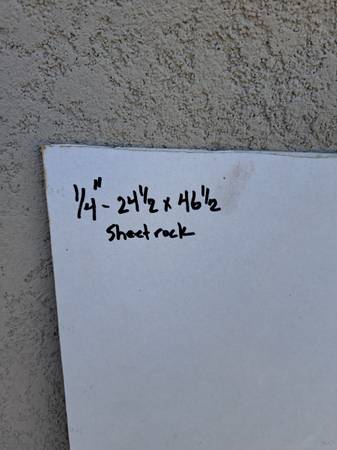 1/4" - 24 1/2 x 46 1/2
Sheetrock